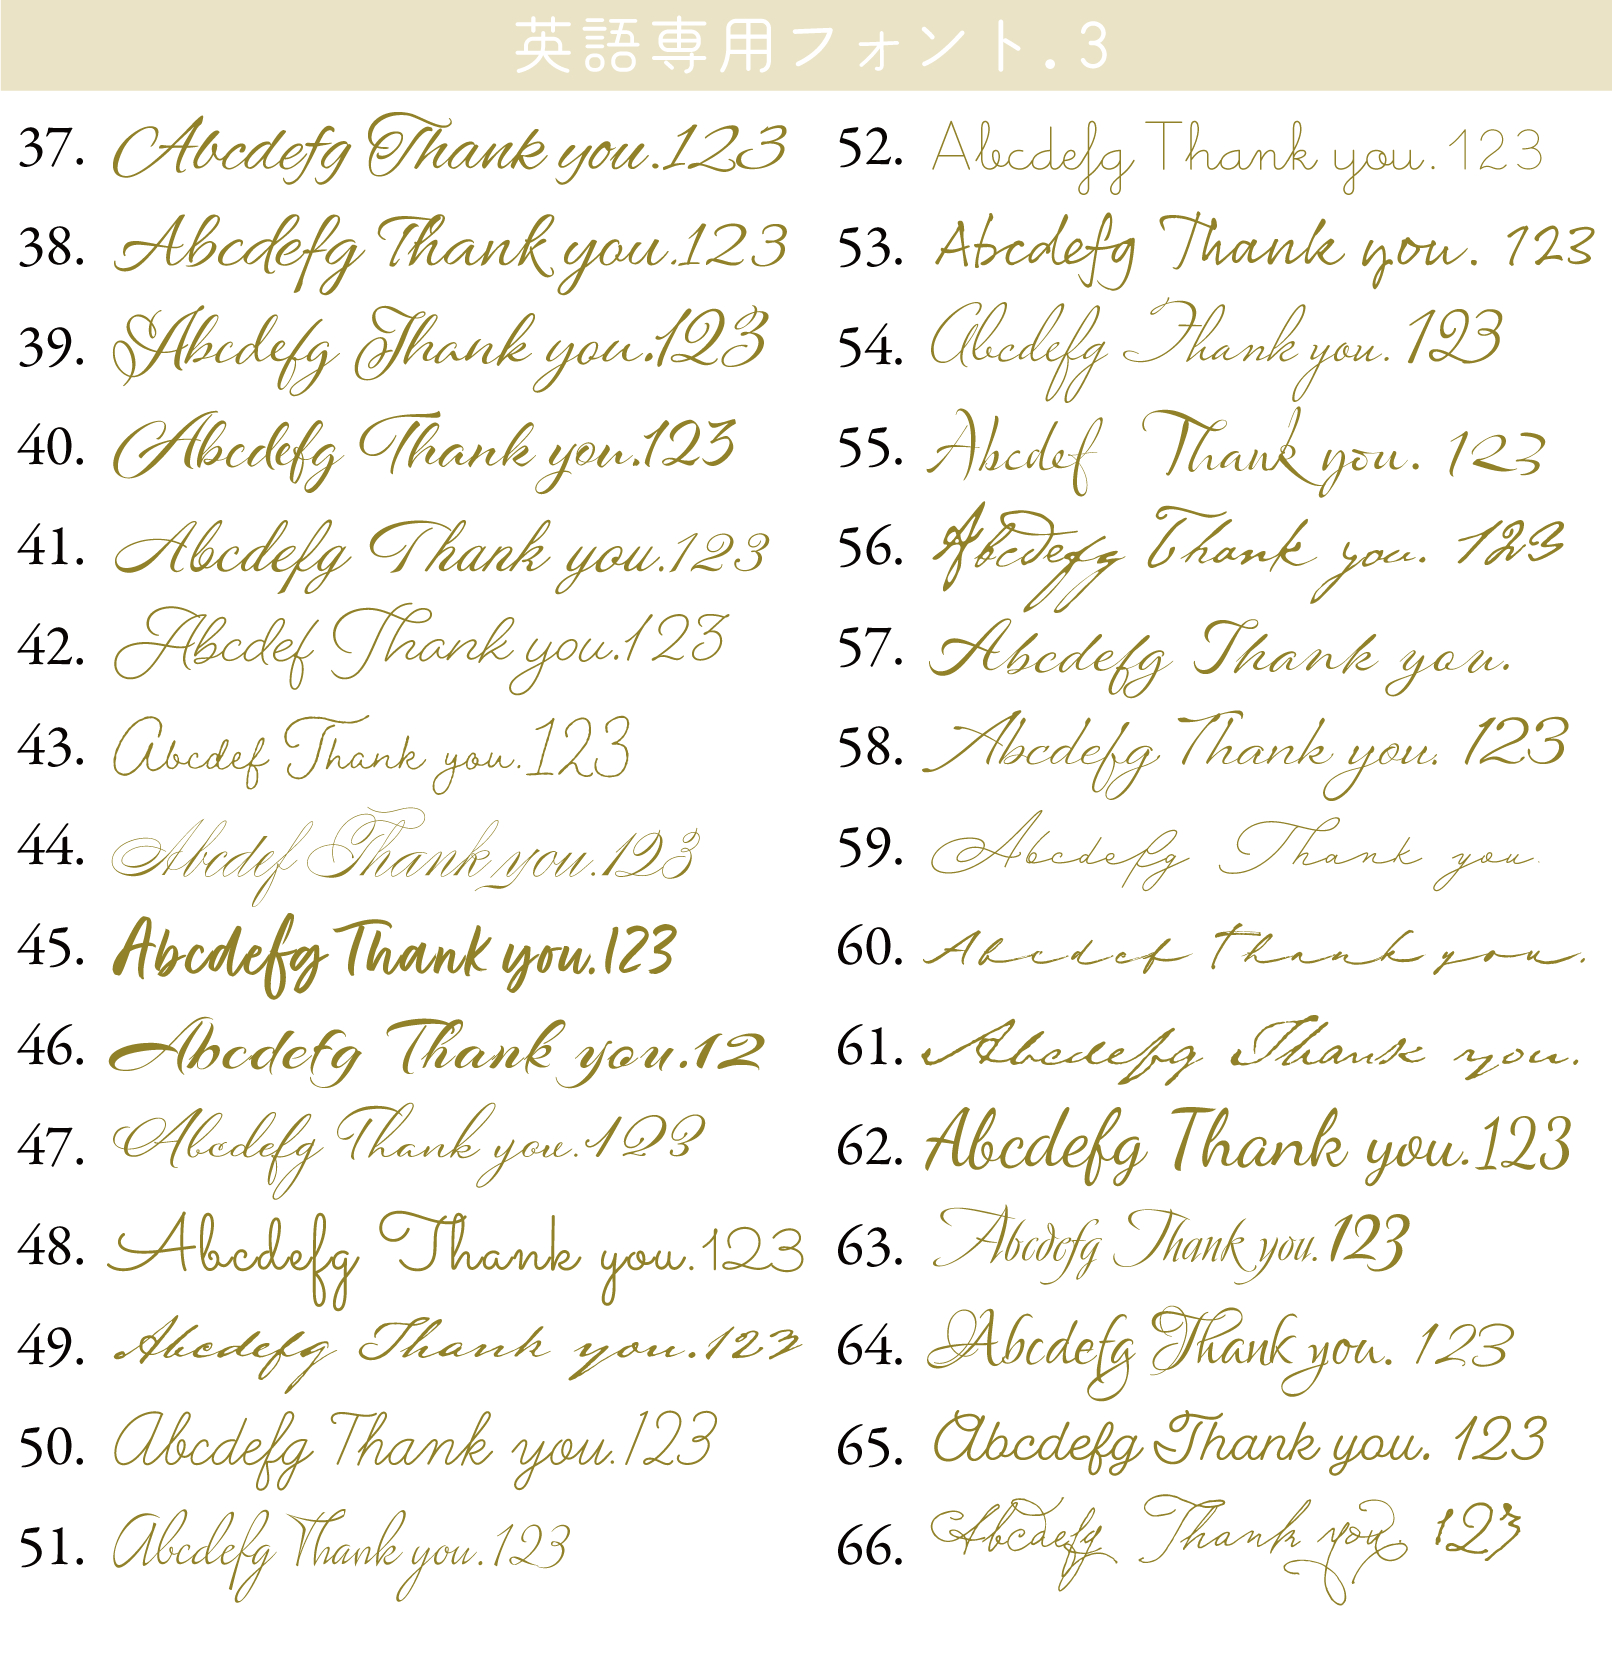 英語専用フォント.3
37. Abcdefg Thank you.123
38. Abcdefg Thank you.123
39. Abcdefg Thank you.123
40. Abcdefg Thank you.123
41. Abcdefg Thank you.123
42. Abcdef Thank you.123
43. Abcdef Thank you.123
44. Abcdef Thank you.123
45. Abcdefg Thank you.123
46. Abcdefg Thank you.12
47. Abcdefg Thank you.123
48. Abcdefg Thank you.123
49. Abcdefg Thank you.123
50. Abcdefg Thank you.123
51. Abcdefg Thank you.123
52. Abcdefg Thank you.123
53. Abcdefg Thank you. 123
54. Abcdefg Thank you. 123
55. Abcdef Thank you. 123
56. Abcdefg Thank you. 123
57. Abcdefg Thank you.
58. Abcdefg Thank you. 123
59. Abcdefg Thank you.
60. Abcdef Thank you.
61. Abcdefg Thank you.
62. Abcdefg Thank you.123
63. Abcdefg Thank you.123
64. Abcdefg Thank you. 123
65. Abcdefg Thank you. 123
66. Abcdefg Thank you 123